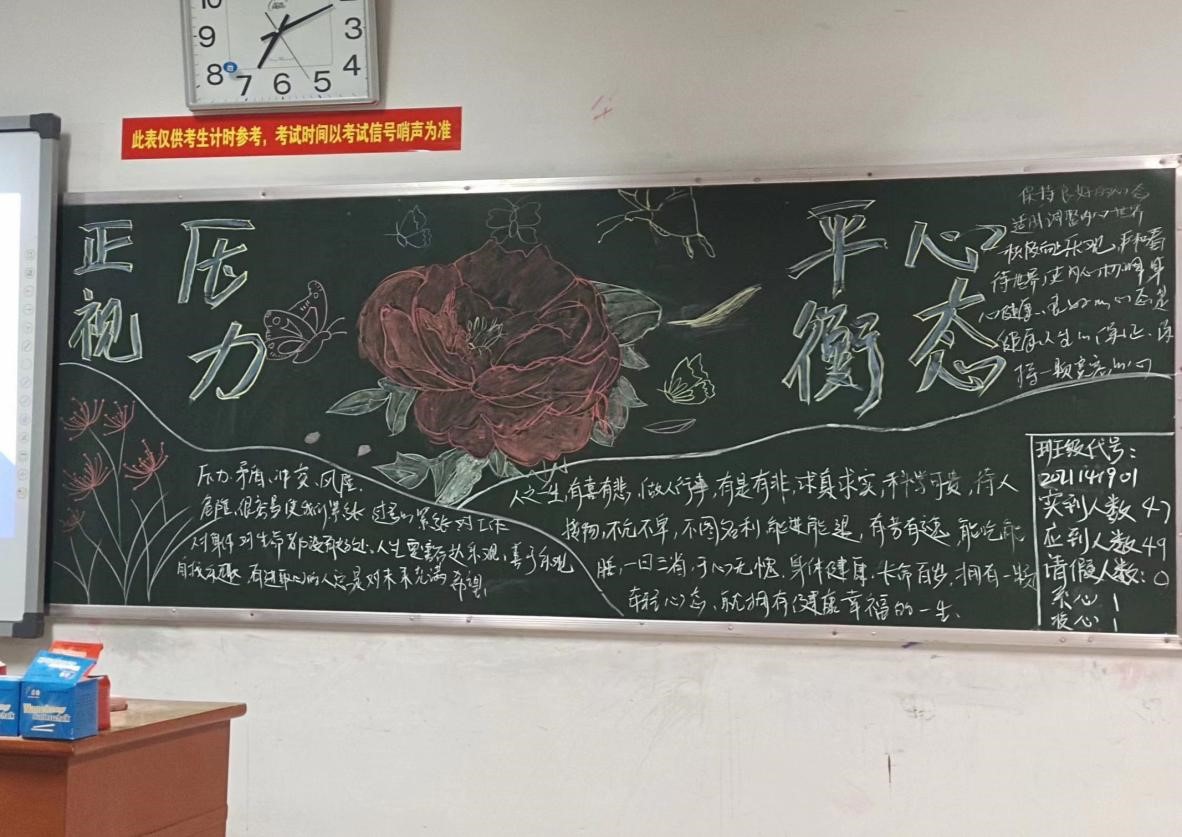 10
9
3
8
4
7 6 5
此表仅供考生计时参考，考试时间以考试信号哨声为准
正视
压力
平衡
心态
保持良好的心态
适时调整内心世界
积极向上乐观，平和看
待世界，使内心
心健康、良好的心态是
健康人生的保证、保
持一颗宽容的心
压力、矛盾、冲突、风险、
危难，很容易使我们紧张 过度的紧张对工作
对事件对生命都没有好处、人生更需要达乐观，善于乐观
有进取心的人总是对未来充满希望，
人之一生，有喜有悲，做人行事，有是有非，求真求实，科学可贵，待人
接物，不亢不卑，不图名利，能进能退，有劳有逸，能吃能
睡，一日三省，于心无愧，身体健康，长命百岁，拥有一颗
年轻心态、就拥有健康幸福的一生.
班级代号：
2021141901
实到人数 47
应到人数 49
请假人数：0
1
1